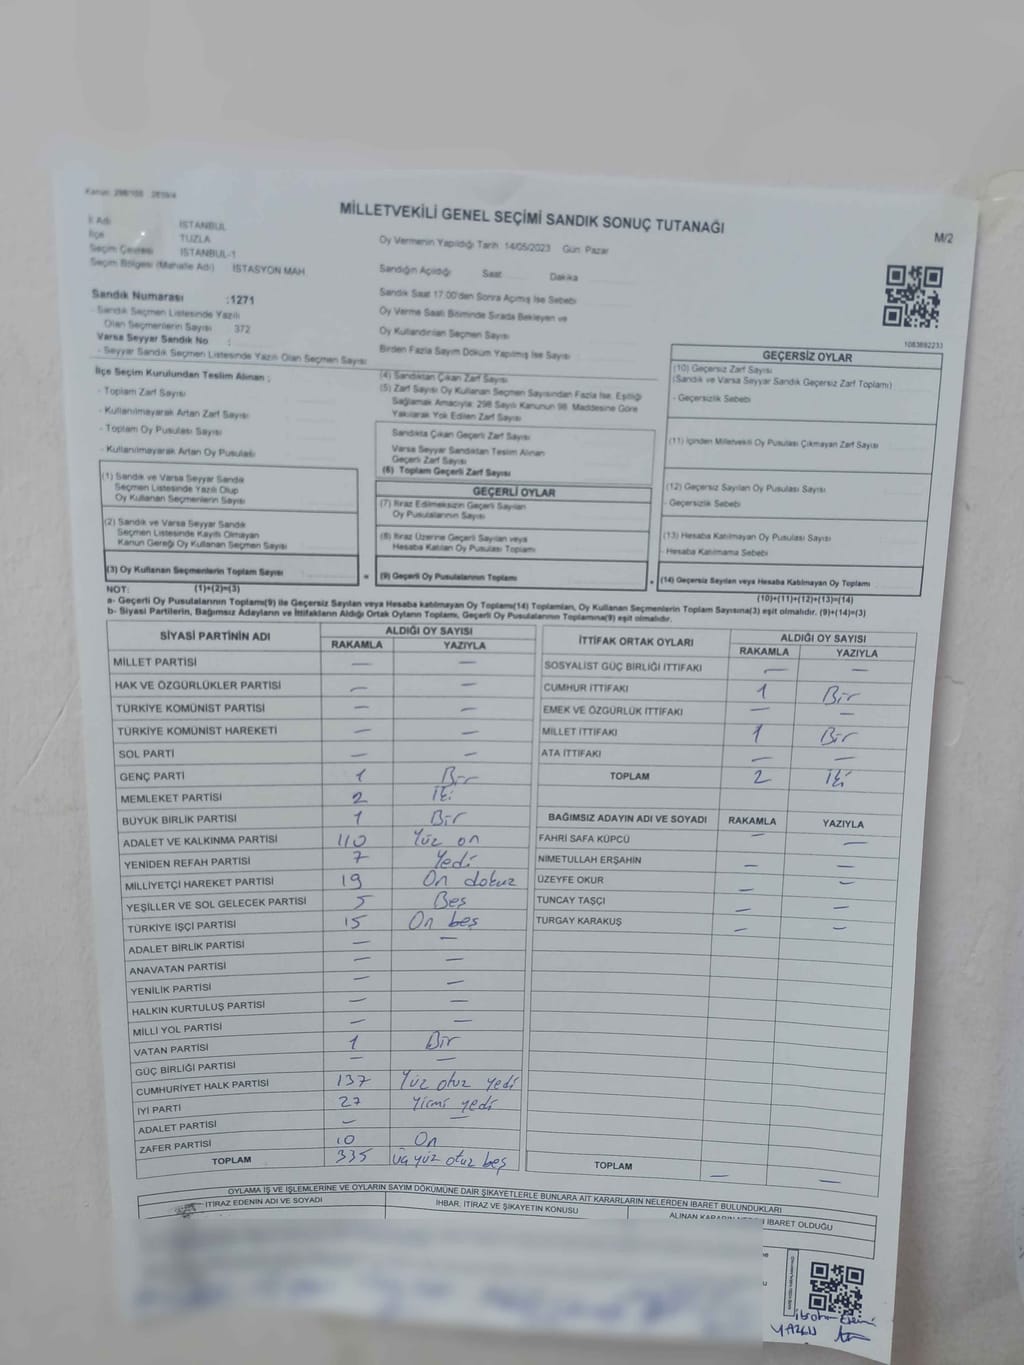 MİLLETVEKİLİ GENEL SEÇİMİ SANDIK SONUÇ TUTANAĞI
M/2
İl Adı İSTANBUL
İlçe TUZLA
Seçim Çevresi İSTANBUL-1
Seçim Bölgesi (Mahalle Adı) İSTASYON MAH
Oy Vermenin Yapıldığı Tarih: 14/05/2023 Gün: Pazar
Sandığın Açıldığı Saat Dakika
Sandık Saat 17:00'den Sonra Açılmış İse Sebebi
Oy Verme Saati Bitiminde Sırada Bekleyen ve
Oy Kullandırılan Seçmen Sayısı
Birden Fazla Sayım Döküm Yapılmış İse Sayısı
Sandık Numarası :1271
- Sandık Seçmen Listesinde Yazılı
Olan Seçmenlerin Sayısı 372
Varsa Seyyar Sandık No :
- Seyyar Sandık Seçmen Listesinde Yazılı Olan Seçmen Sayısı
1083692233
İlçe Seçim Kurulundan Teslim Alınan ;
- Toplam Zarf Sayısı
- Kullanılmayarak Artan Zarf Sayısı
- Toplam Oy Pusulası Sayısı
- Kullanılmayarak Artan Oy Pusulası
(1) Sandık ve Varsa Seyyar Sandık
Seçmen Listesinde Yazılı Olup
Oy Kullanan Seçmenlerin Sayısı
(2) Sandık ve Varsa Seyyar Sandık
Seçmen Listesinde Kayıtlı Olmayan
Kanun Gereği Oy Kullanan Seçmen Sayısı
(3) Oy Kullanan Seçmenlerin Toplam Sayısı
(4) Sandıktan Çıkan Zarf Sayısı
(5) Zarf Sayısı Oy Kullanan Seçmen Sayısından Fazla İse, Eşitliği
Sağlamak Amacıyla; 298 Sayılı Kanunun 98. Maddesine Göre
Yakılarak Yok Edilen Zarf Sayısı
Sandıkta Çıkan Geçerli Zarf Sayısı
Varsa Seyyar Sandıktan Teslim Alınan
Geçerli Zarf Sayısı
(6) Toplam Geçerli Zarf Sayısı
GEÇERLİ OYLAR
(7) İtiraz Edilmeksizin Geçerli Sayılan
Oy Pusulalarının Sayısı
(8) İtiraz Üzerine Geçerli Sayılan veya
Hesaba Katılan Oy Pusulası Toplamı
= (9) Geçerli Oy Pusulalarının Toplamı
GEÇERSİZ OYLAR
(10) Geçersiz Zarf Sayısı
(Sandık ve Varsa Seyyar Sandık Geçersiz Zarf Toplamı)
- Geçersizlik Sebebi
(11) İçinden Milletvekili Oy Pusulası Çıkmayan Zarf Sayısı
(12) Geçersiz Sayılan Oy Pusulası Sayısı
- Geçersizlik Sebebi
(13) Hesaba Katılmayan Oy Pusulası Sayısı
- Hesaba Katılmama Sebebi
+ (14) Geçersiz Sayılan veya Hesaba Katılmayan Oy Toplamı
NOT: (1)+(2)=(3) (10)+(11)+(12)+(13)=(14)
a- Geçerli Oy Pusulalarının Toplamı(9) ile Geçersiz Sayılan veya Hesaba katılmayan Oy Toplamı(14) Toplamları, Oy Kullanan Seçmenlerin Toplam Sayısına(3) eşit olmalıdır. (9)+(14)=(3)
b- Siyasi Partilerin, Bağımsız Adayların ve İttifakların Aldığı Ortak Oyların Toplamı, Geçerli Oy Pusulalarının Toplamına(9) eşit olmalıdır.
SİYASİ PARTİNİN ADI ALDIĞI OY SAYISI
RAKAMLA YAZIYLA
MİLLET PARTİSİ — —
HAK VE ÖZGÜRLÜKLER PARTİSİ — —
TÜRKİYE KOMÜNİST PARTİSİ — —
TÜRKİYE KOMÜNİST HAREKETİ — —
SOL PARTİ — —
GENÇ PARTİ 1 Bir
MEMLEKET PARTİSİ 2 İki
BÜYÜK BİRLİK PARTİSİ 1 Bir
ADALET VE KALKINMA PARTİSİ 110 Yüz on
YENİDEN REFAH PARTİSİ 7 Yedi
MİLLİYETÇİ HAREKET PARTİSİ 19 On dokuz
YEŞİLLER VE SOL GELECEK PARTİSİ 5 Beş
TÜRKİYE İŞÇİ PARTİSİ 15 On beş
ADALET BİRLİK PARTİSİ — —
ANAVATAN PARTİSİ — —
YENİLİK PARTİSİ — —
HALKIN KURTULUŞ PARTİSİ — —
MİLLİ YOL PARTİSİ — —
VATAN PARTİSİ 1 Bir
GÜÇ BİRLİĞİ PARTİSİ — —
CUMHURİYET HALK PARTİSİ 137 Yüz otuz yedi
İYİ PARTİ 27 Yirmi yedi
ADALET PARTİSİ — —
ZAFER PARTİSİ 10 On
TOPLAM 335 üç yüz otuz beş
İTTİFAK ORTAK OYLARI ALDIĞI OY SAYISI
RAKAMLA YAZIYLA
SOSYALİST GÜÇ BİRLİĞİ İTTİFAKI — —
CUMHUR İTTİFAKI 1 Bir
EMEK VE ÖZGÜRLÜK İTTİFAKI — —
MİLLET İTTİFAKI 1 Bir
ATA İTTİFAKI — —
TOPLAM 2 İki
BAĞIMSIZ ADAYIN ADI VE SOYADI RAKAMLA YAZIYLA
FAHRİ SAFA KÜPCÜ — —
NİMETULLAH ERŞAHİN — —
ÜZEYFE OKUR — —
TUNCAY TAŞÇI — —
TURGAY KARAKUŞ — —
TOPLAM — —
OYLAMA İŞ VE İŞLEMLERİNE VE OYLARIN SAYIM DÖKÜMÜNE DAİR ŞİKAYETLERLE BUNLARA AİT KARARLARIN NELERDEN İBARET BULUNDUKLARI
İTİRAZ EDENİN ADI VE SOYADI İHBAR, İTİRAZ VE ŞİKAYETİN KONUSU ALINAN KARARIN NEDEN İBARET OLDUĞU